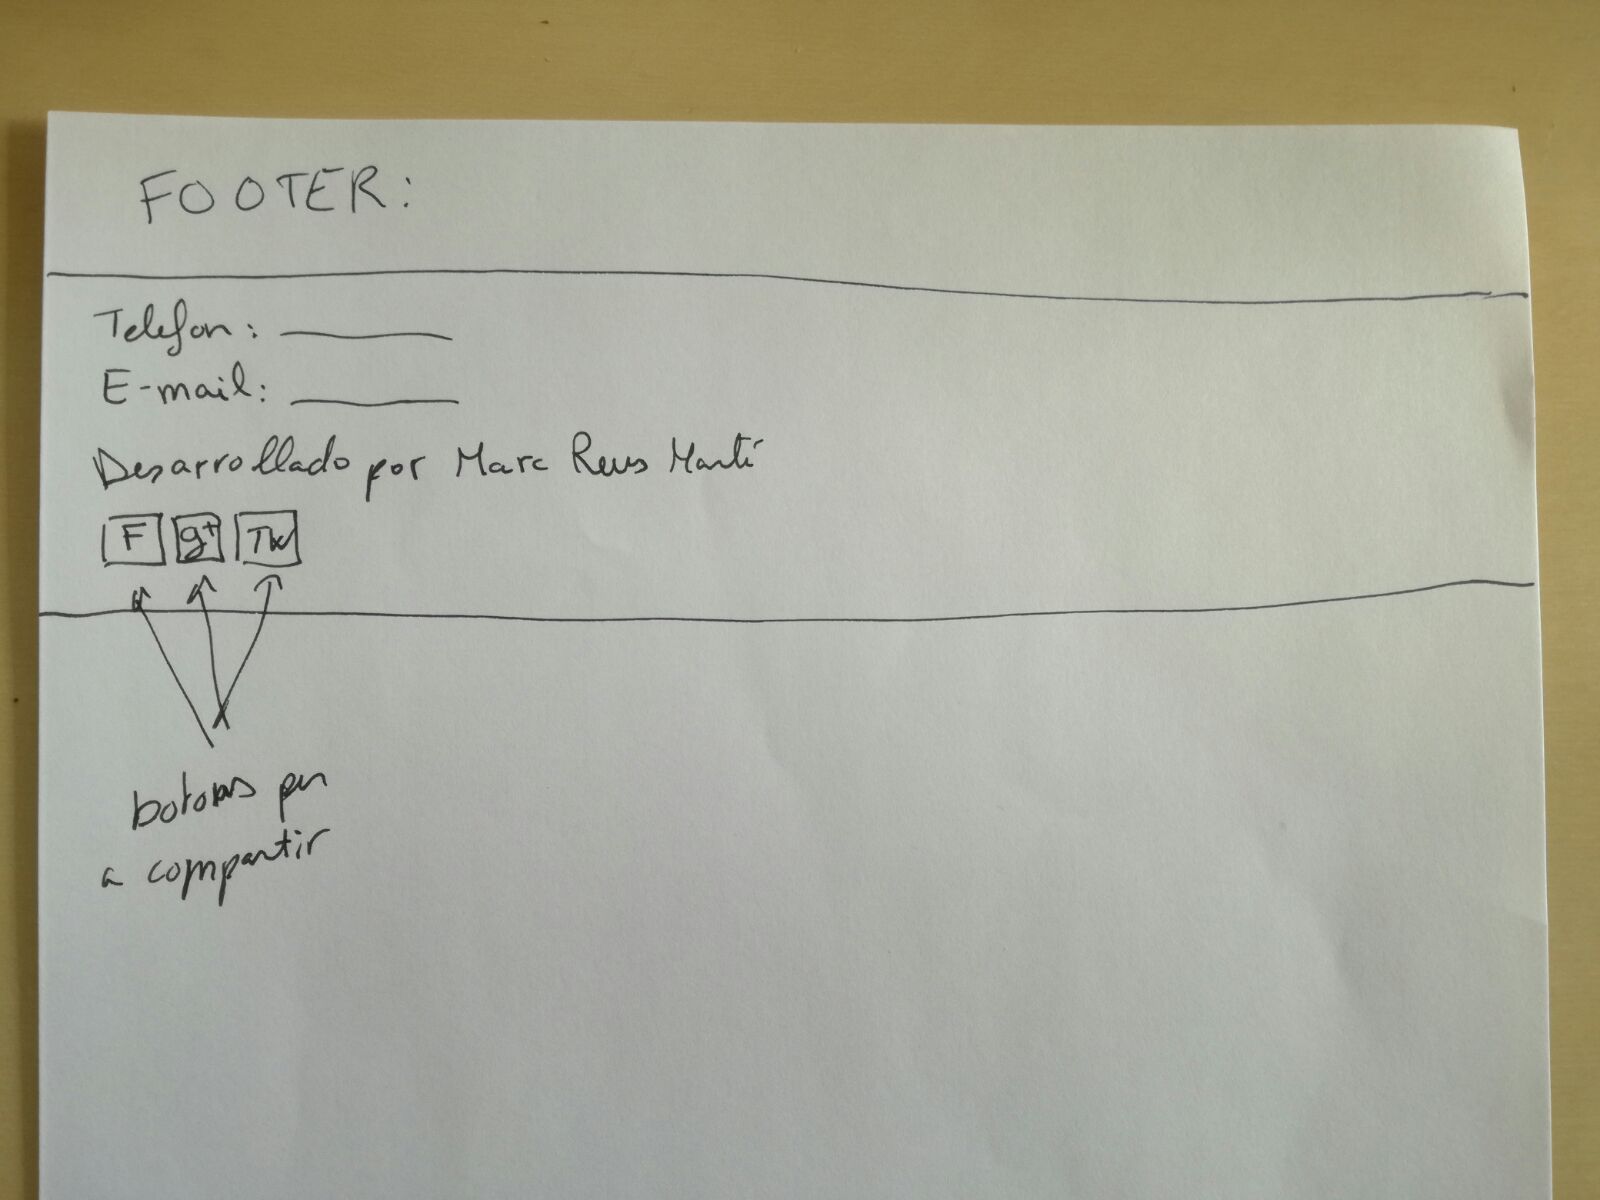 FOOTER:
Telefon: ________
E-mail: ________
Desarrollado por Marc Reus Martí
F g+ Tw
botons per
a compartir